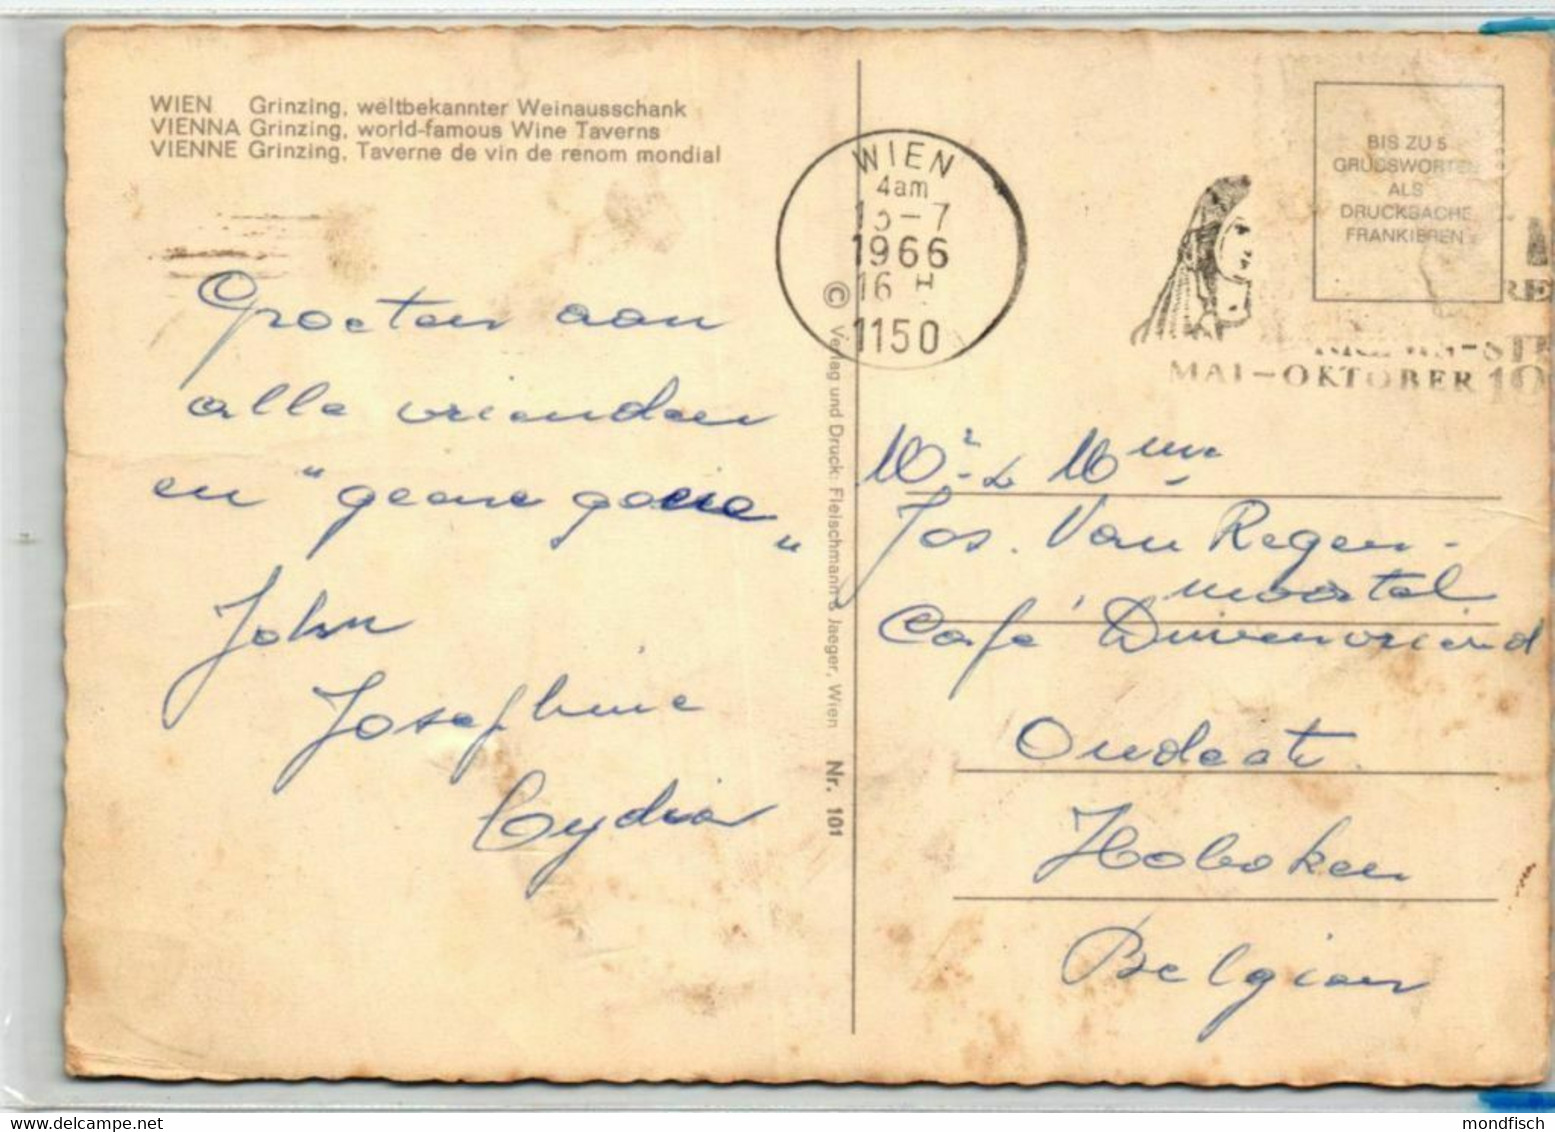 WIEN Grinzing, weltbekannter Weinausschank
VIENNA Grinzing, world-famous Wine Taverns
VIENNE Grinzing, Taverne de vin de renom mondial
WIEN
4am
-7
1966
16 H
1150
BIS ZU 5
GRUSSWORTEN
ALS
DRUCKSACHE
FRANKIEREN
MAI-OKTOBER 19
Groeten aan
alle vrienden
en "geane
John
Josephine
Lydia
© Verlag und Druck: Fleischmann & Jaeger, Wien Nr. 101
Mr & Mme
Jos. Van Regen-
moortel
Café Duivenvriend
Oudestr.
Hoboken
Belgien
mondfisch